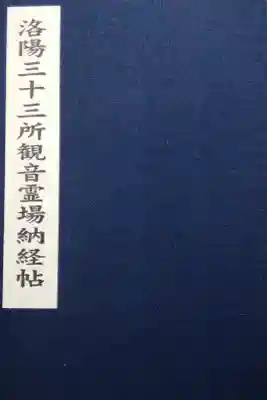 洛陽三十三所観音霊場納経帖